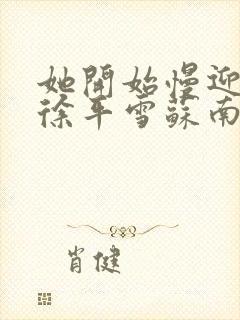 她開始慢迎
徐平雪蘇南
肖健